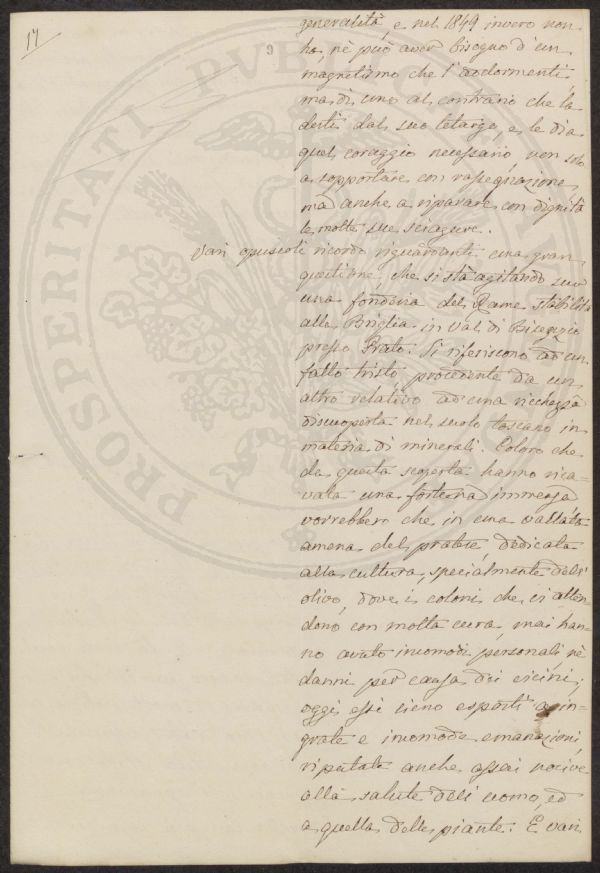 17
9
PROSPERITATI PUBLICAE
generalità, e nel 1849 invero non
ha, nè può aver bisogno d'un
magnetismo che l'addormenti,
ma di uno al contrario che la
desti dal suo letargo, e le dia
quel coraggio necessario, non solo
a sopportare con rassegnazione,
ma anche a riparare con dignità
le molte sue sciagure.
Vari opuscoli ricordo riguardanti una gran
questione, che si stà agitando su
una fonderia del Rame stabilita
alla Briglia in Val di Bisenzio
presso Prato. Si riferiscono ad un
fatto tristo procedente da un
altro relativo ad una ricchezza
discuoperta nel suolo toscano in
materia di minerali. Coloro che
da questa scoperta hanno rica-
vata una fortuna immensa
vorrebbero che in una vallata
amena del pratese, dedicata
alla cultura, specialmente dell'
olivo, dove i coloni che vi atten-
dono con molta cura, mai han-
no avuto incomodi personali nè
danni per causa dei vicini;
oggi essi sieno esposti a in-
grate e incomode emanazioni,
riputate anche assai nocive
alla salute dell'uomo, ed
a quella delle piante. E vari